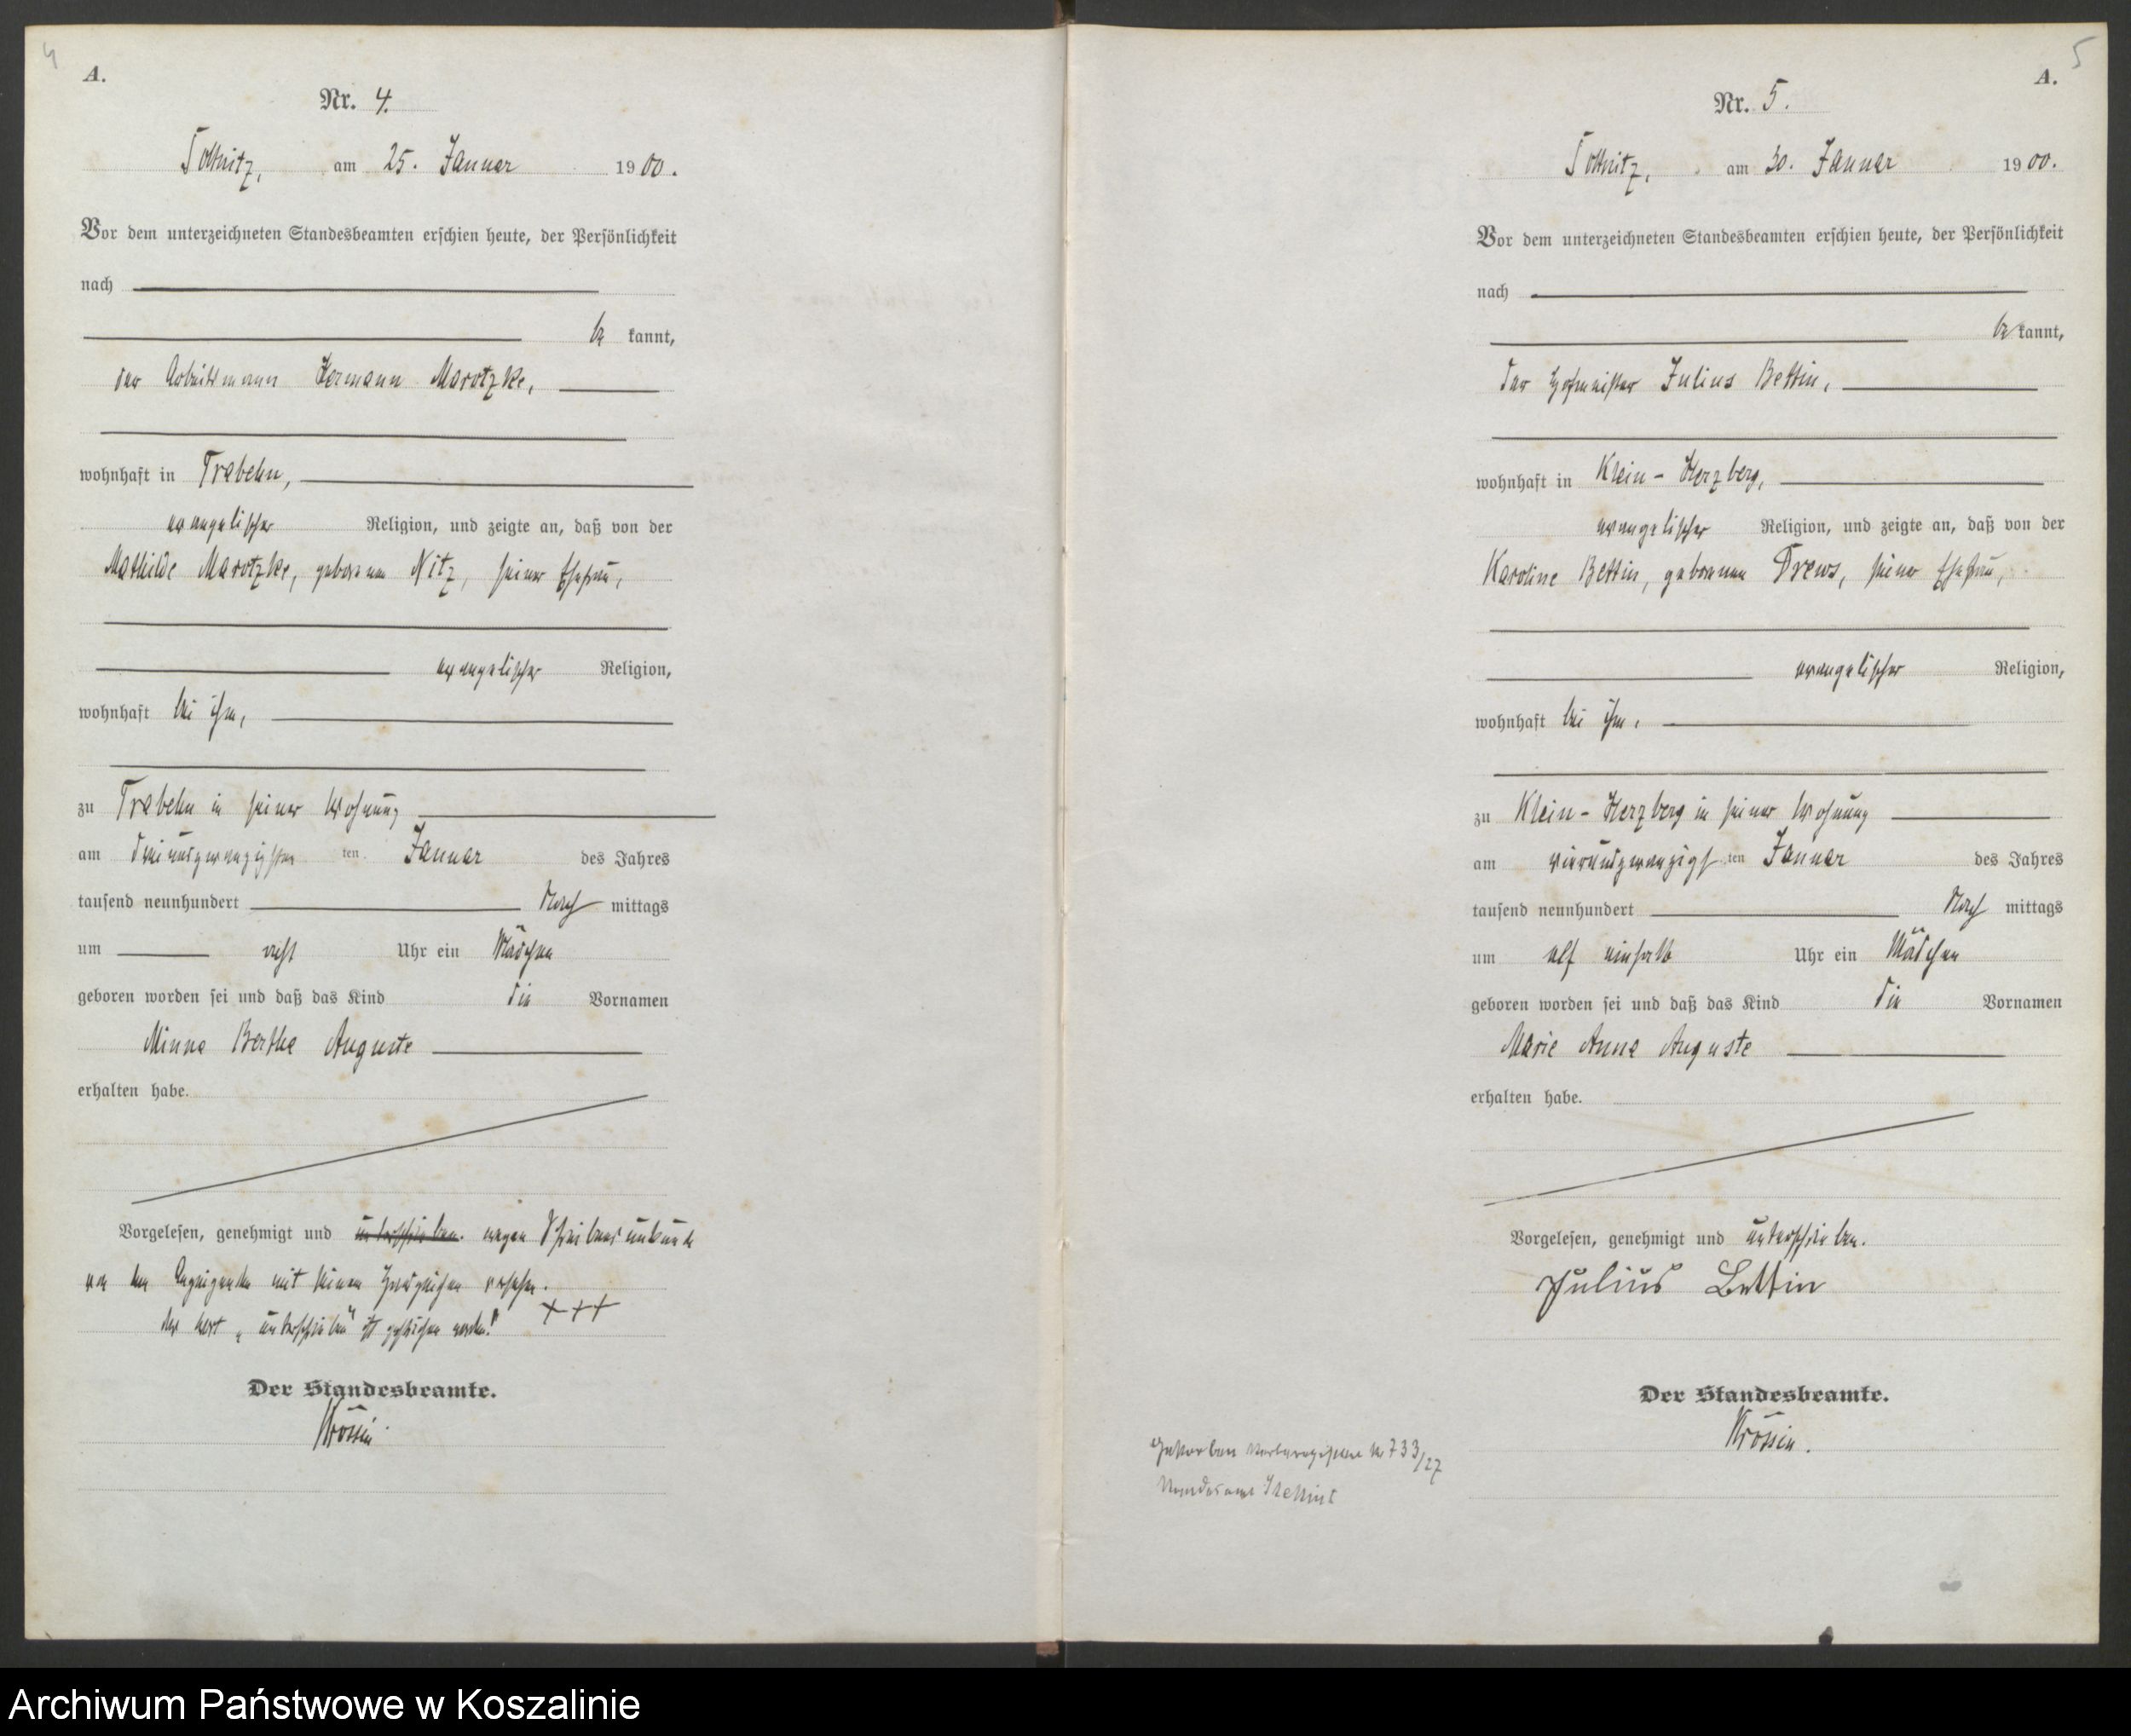 4
A.
Nr. 4.
Soltnitz, am 25. Januar 1900.
Vor dem unterzeichneten Standesbeamten erschien heute, der Persönlichkeit
nach
be kannt,
der Arbeitsmann Hermann Marotzke,
wohnhaft in Trabehn,
evangelischer Religion, und zeigte an, daß von der
Mathilde Marotzke, geborenen Nitz, seiner Ehefrau,
evangelischer Religion,
wohnhaft bei ihm,
zu Trabehn in seiner Wohnung
am dreiundzwanzigsten ten Januar des Jahres
tausend neunhundert Nach mittags
um acht Uhr ein Mädchen
geboren worden sei und daß das Kind die Vornamen
Minna Bertha Auguste
erhalten habe.
Vorgelesen, genehmigt und unterschrieben. wegen Schreibensunkunde
von dem Anzeigenden mit seinem Handzeichen versehen.
+++
Das Wort „unterschrieben" ist gestrichen worden.
Der Standesbeamte.
Krössin.
5
A.
Nr. 5.
Soltnitz, am 30. Januar 1900.
Vor dem unterzeichneten Standesbeamten erschien heute, der Persönlichkeit
nach
be kannt,
der Hofmeister Julius Bettin,
wohnhaft in Klein-Herzberg,
evangelischer Religion, und zeigte an, daß von der
Karoline Bettin, geborenen Drews, seiner Ehefrau,
evangelischer Religion,
wohnhaft bei ihm,
zu Klein-Herzberg in seiner Wohnung
am vierundzwanzigs ten Januar des Jahres
tausend neunhundert Nach mittags
um elf einhalb Uhr ein Mädchen
geboren worden sei und daß das Kind die Vornamen
Marie Anna Auguste
erhalten habe.
Vorgelesen, genehmigt und unterschrieben.
Julius Bettin
Der Standesbeamte.
Krössin.
Gestorben Sterberegister Nr 733/27
Standesamt Stettin
Archiwum Państwowe w Koszalinie